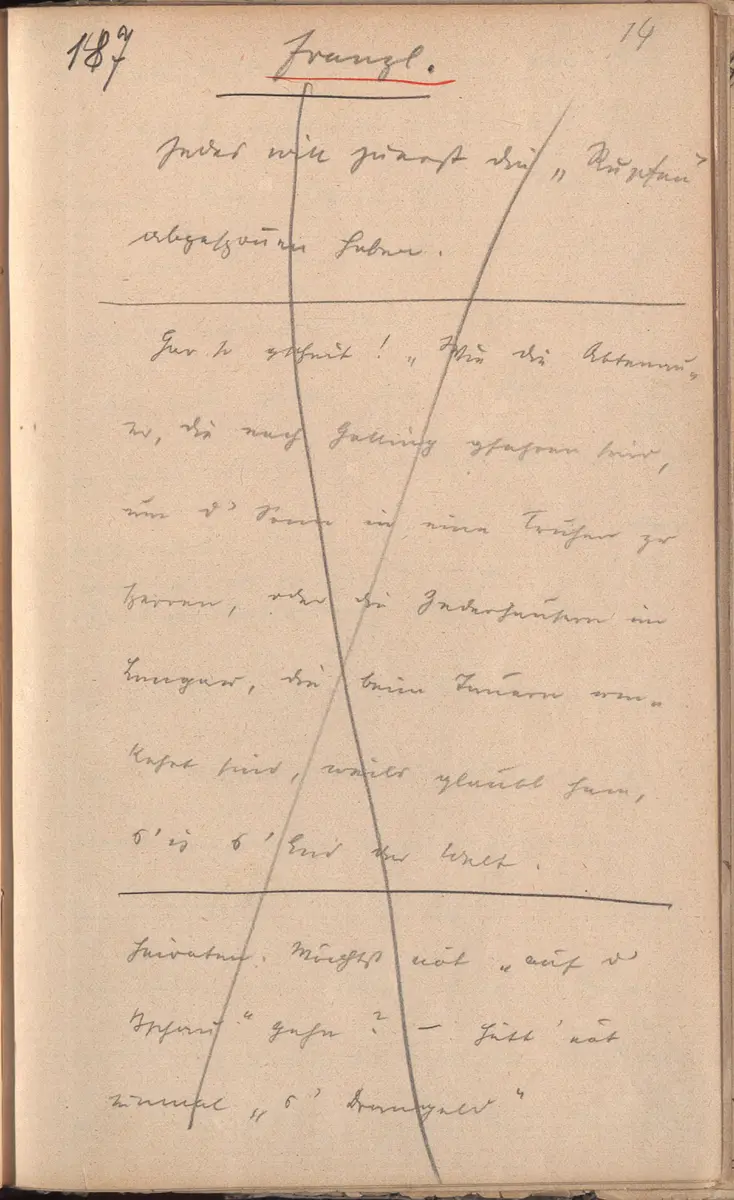 187
14
Franzl.
Jedes will zuerst die „Rupfen"
abgesponnen haben.
Gar so gscheit! „Wie die Abtenau-
er, die nach Golling gfahren sind,
um d' Sonn in eine Truhen zu
sperren, oder die Zederhauser im
Lungau, die beim Tauern um-
kehrt sind, weils glaubt ham,
s' is s' End der Welt.
Heiraten. Möchtst nöt „auf d'
Bschau" gehn? – Hätt' nöt
einmal „s' Drangeld"